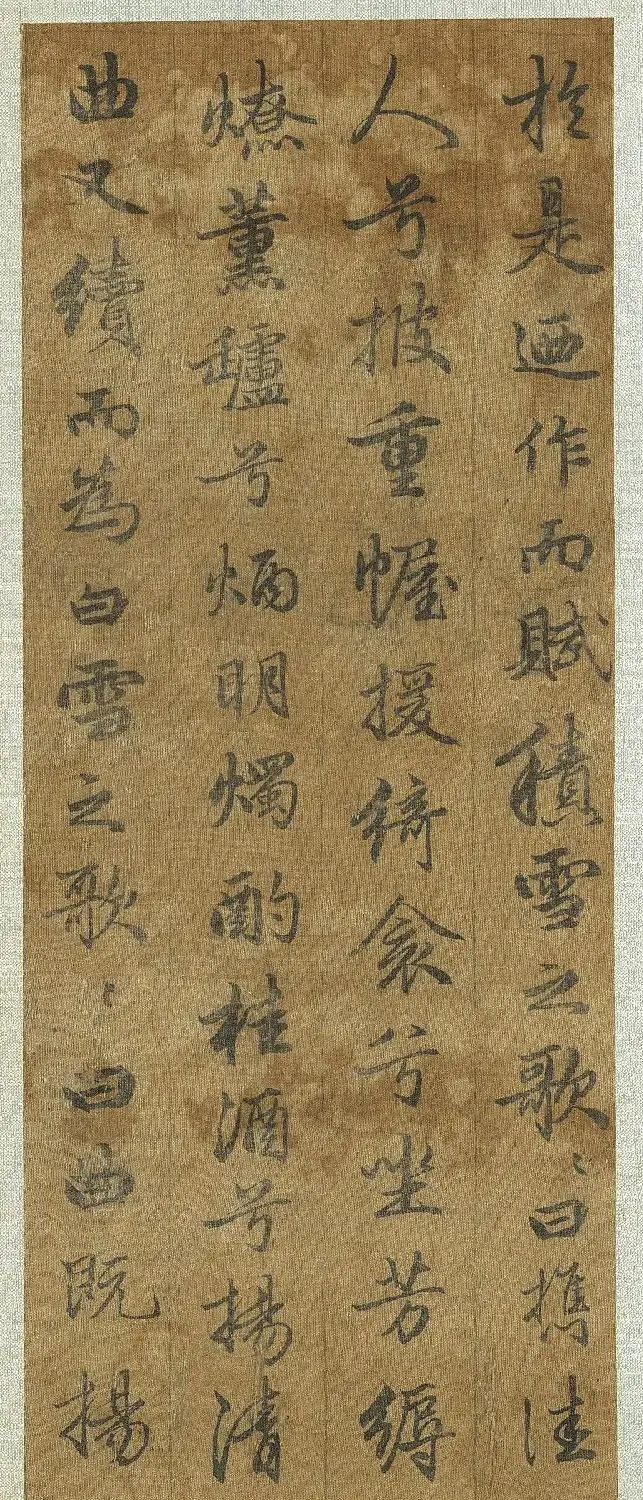 於是迺作而賦積雪之歌々曰攜佳
人兮披重幄援綺衾兮坐芳縟
燎薰罏兮炳明燭酌桂酒兮揚清
曲又續而為白雪之歌々曰曲既揚